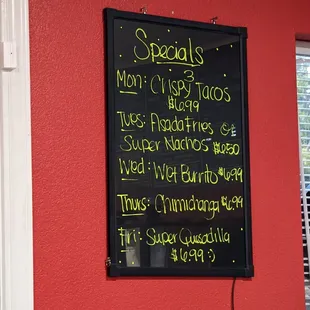 Specials
Mon: Crispy 3 Tacos
$6.99
Tues: Asada Fries OR
Super Nachos $6.50
Wed: Wet Burrito $6.99
Thurs: Chimichanga $6.99
Fri: Super Quesadilla
$6.99 :)